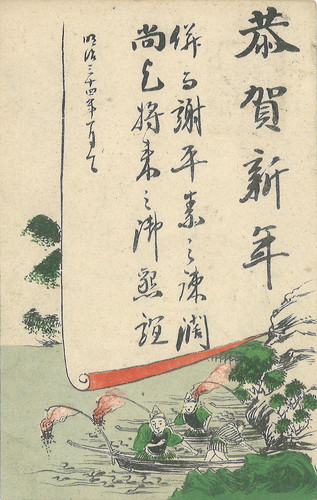 恭賀新年
併而謝平素之疎濶
尚乞将来之御懇誼
明治三十四年一月一日